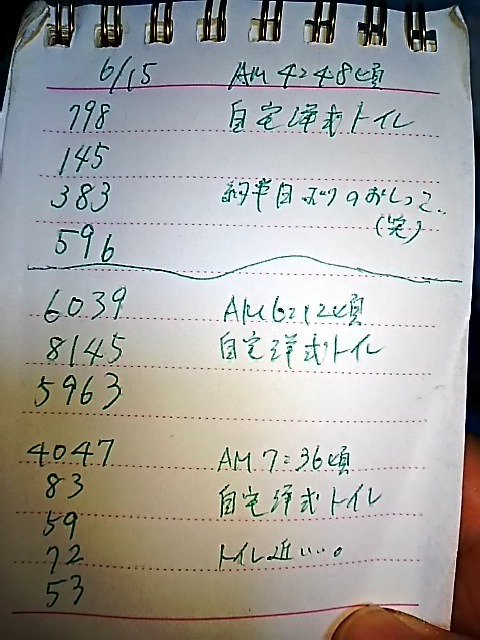 6/15 AM 4:48頃
798 自宅洋式トイレ
145
383 の おしっこ..
(笑)
596
6039 AM 6:12頃
8145 自宅洋式トイレ
5963
4047 AM 7:36頃
83 自宅洋式トイレ
59
72 トイレ近い…。
53